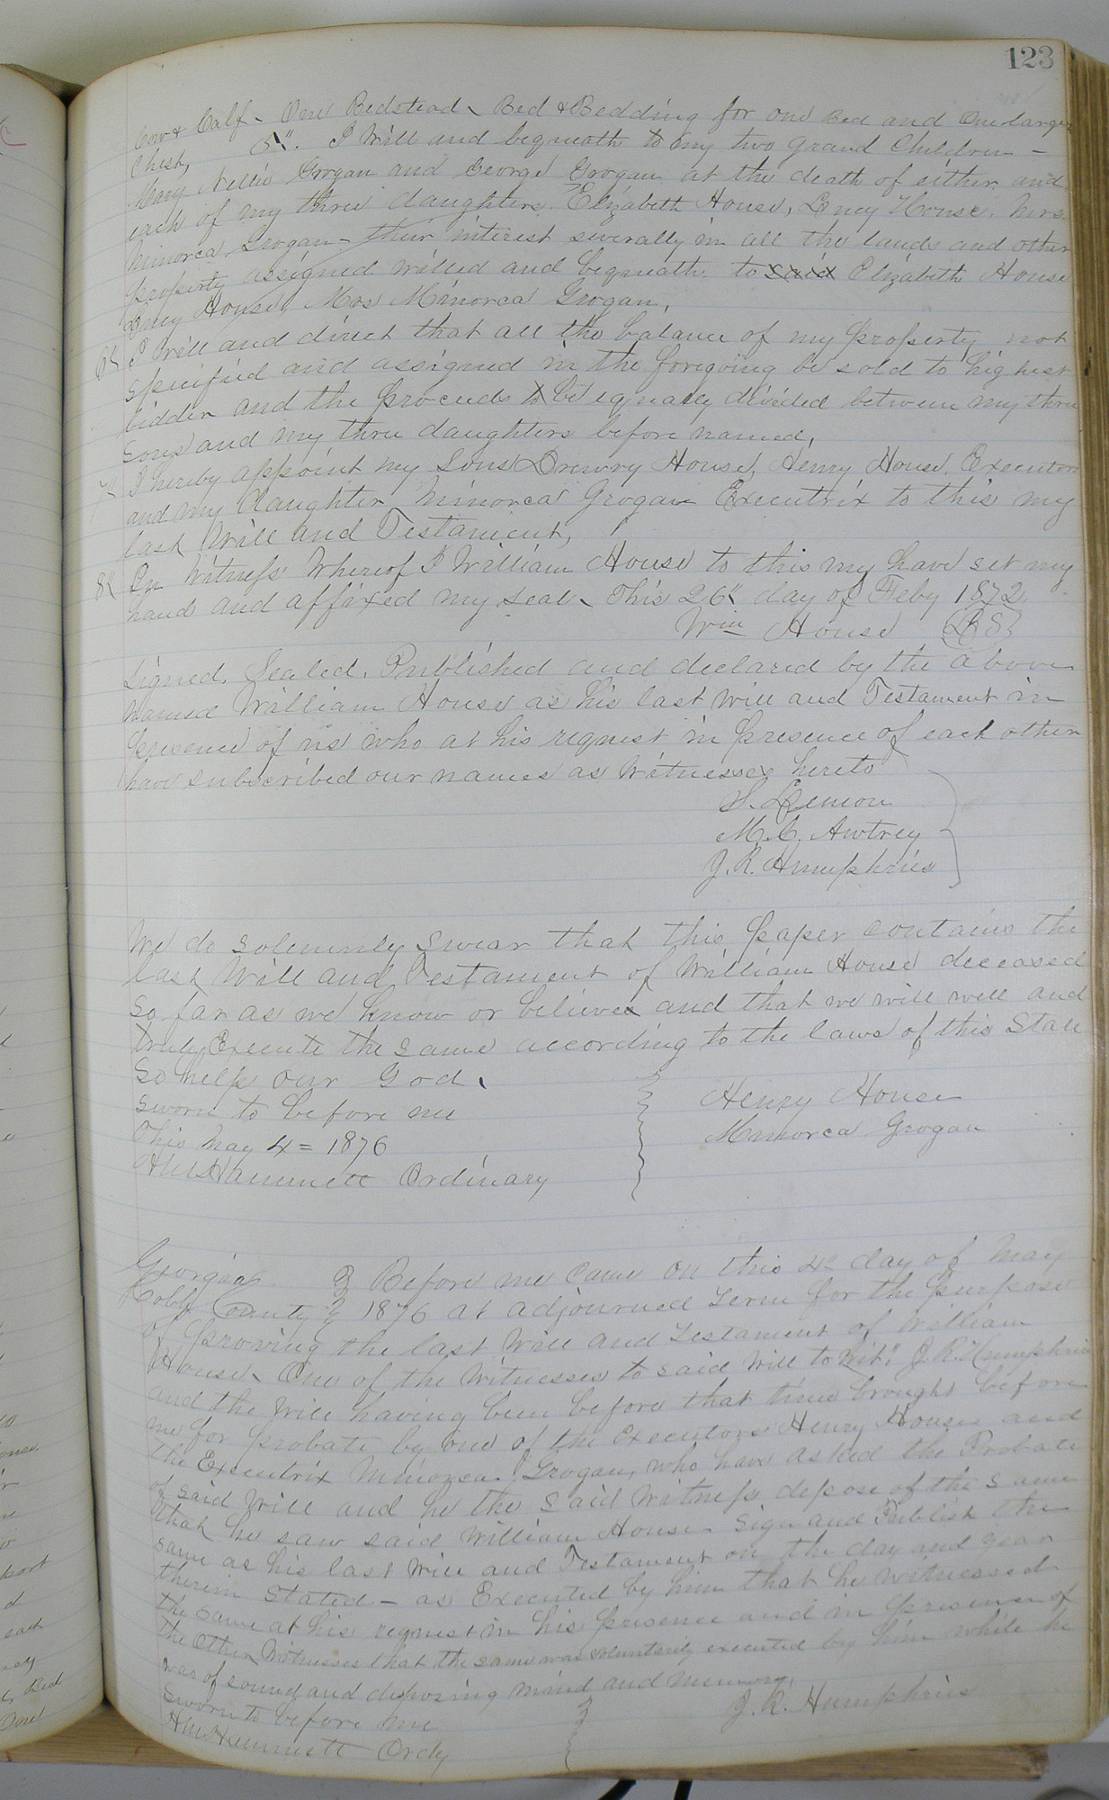 123
Cow & Calf. One Bedstead, Bed & Bedding for one Bed and One large
Chest,     5". I Will and bequeath to my two Grand Children -
Mary Nellie Grogan and George Grogan at the death of either and
each of my three daughters. Elizabeth House, Quey House. Mrs.
Minorca Grogan - their interest severally in all the lands and other
property assigned willed and bequeath to said Elizabeth House
Quey House, Mrs Minorca Grogan.
6th I Will and direct that all the balance of my property not
specified and assigned in the foregoing be sold to highest
bidder and the proceeds to be equally divided between my three
sons and my three daughters before named.
7th I hereby appoint my Sons Drewry House, Henry House, Executors
and my daughter Minorca Grogan Executrix to this my
last Will and Testament,
8th In Witness Whereof I William House to this my have set my
hand and affixed my seal. This 26" day of Feby 1872
Wm House (LS)
Signed, Sealed, Published and declared by the above
Named William House as his last Will and Testament in
presence of us who at his request in presence of each other
have subscribed our names as Witnesses hereto
S. Lemon
M. C. Awtrey
J. R. Humphries
We do solemnly swear that this paper contains the
last Will and Testament of William House deceased
so far as we know or believe and that we will well and
truly Execute the same according to the laws of this State
So help our God.
Sworn to before me      Henry House
This May 4 = 1876      Minorca Grogan
H M Hammett Ordinary
Georgia      Before me came on this 4th day of May
Cobb County      1876 at adjourned Term for the purpose
of proving the last Will and Testament of William
House. One of the Witnesses to said Will to wit: J. R. Humphries
and the Will having been before that time brought before
me for probate by one of the Executors Henry House and
the Executrix Minorca Grogan, who have asked the Probate
of said Will and he the said Witness depose of the same
that he saw said William House sign and Publish the
same as his last Will and Testament on the day and year
therein stated - as Executed by him that he witnessed
the same at his request in his presence and in presence of
the Other Witnesses that the same was voluntarily executed by him while he
was of sound and disposing mind and memory.
Sworn to before me      J. R. Humphries
H M Hammett Ordy